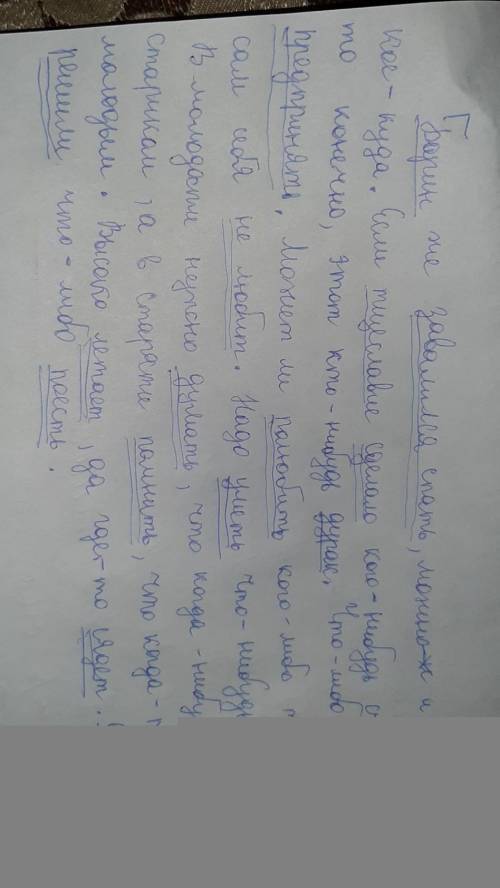 Барин же завалился спать, можно ж и
кое-куда. Если тщеславие сделало кого-нибудь
то конечно, этот кто-нибудь дурак. Что-либо
предпринять. Может ли полюбить кого-либо
сам себя не любит. Надо уметь что-нибудь
В молодости нужно думать, что когда-нибу
старикам, а в старости помнить, что когда-
молодым. Высоко летает, да где-то сядет.
решили что-либо поесть.